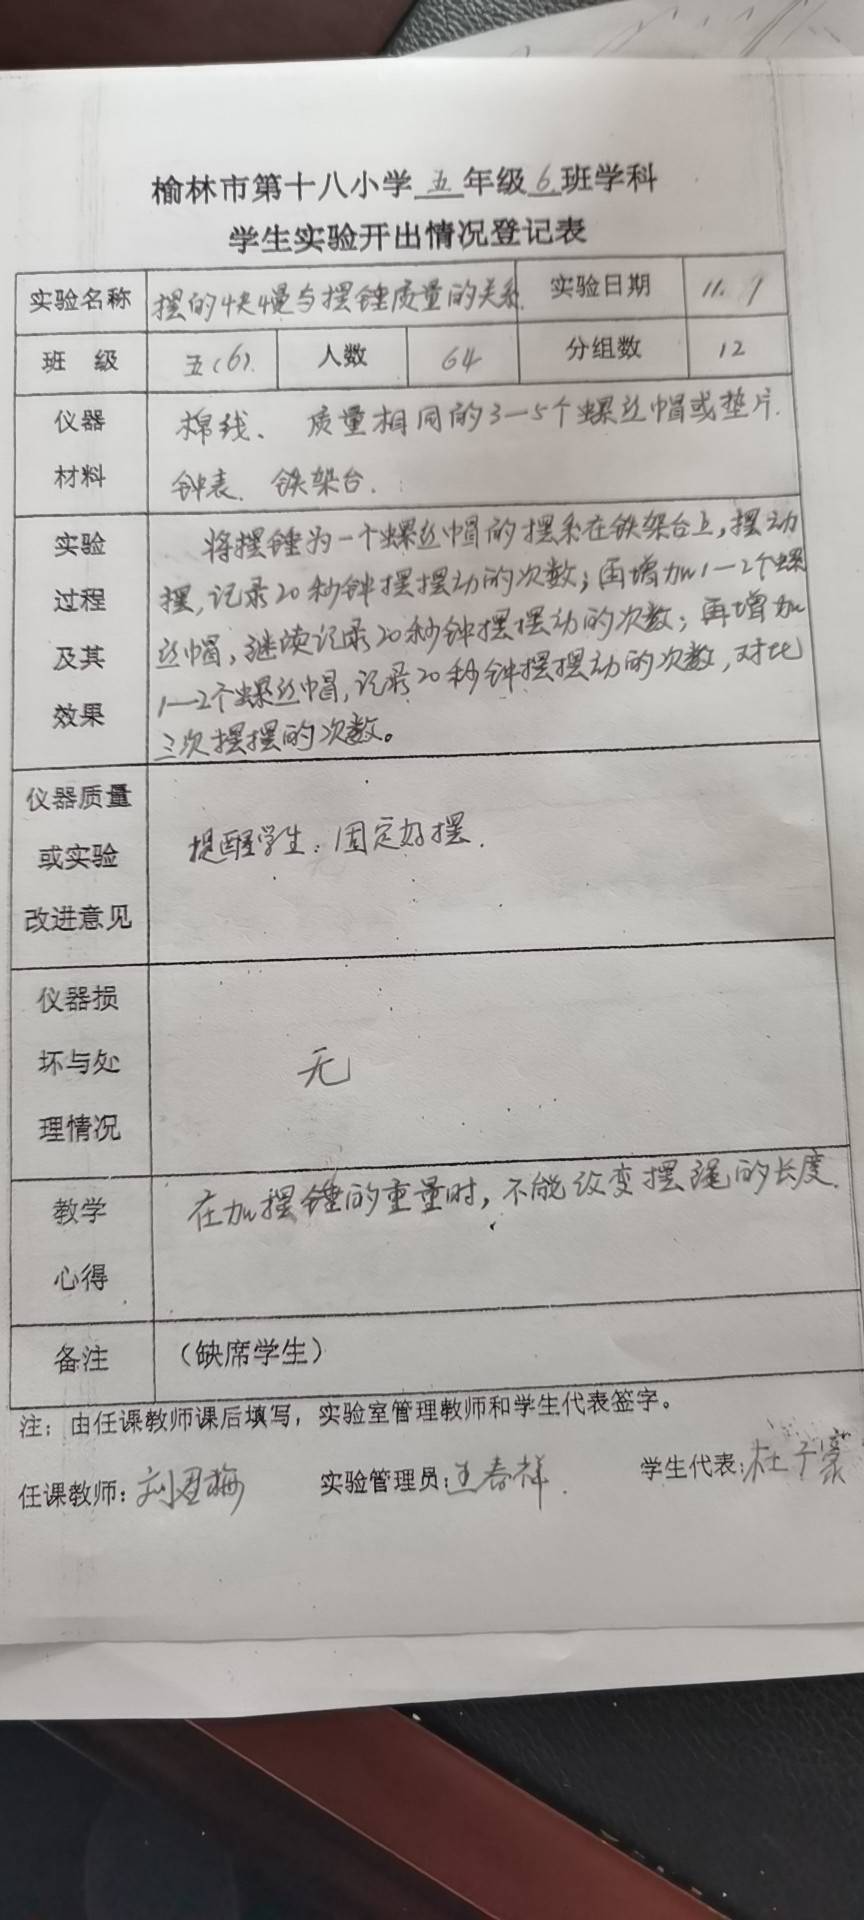 榆林市第十八小学五年级6班学科
学生实验开出情况登记表
实验名称 摆的快慢与摆锤质量的关系. 实验日期 11.9
班 级 五(6). 人数 64 分组数 12
仪器 棉线、质量相同的3—5个螺丝帽或垫片.
材料 钟表. 铁架台.
实验 将摆锤为一个螺丝帽的摆系在铁架台上,摆动
过程 摆,记录20秒钟摆摆动的次数;再增加1—2个螺
及其 丝帽,继续记录20秒钟摆摆动的次数;再增加
效果 1—2个螺丝帽,记录20秒钟摆摆动的次数,对比
三次摆摆的次数。
仪器质量
或实验 提醒学生:固定好摆.
改进意见
仪器损
坏与处 无
理情况
教学 在加摆锤的重量时,不能改变摆绳的长度.
心得
备注 (缺席学生)
注:由任课教师课后填写,实验室管理教师和学生代表签字。
任课教师: 实验管理员:王春祥. 学生代表:杜子豪